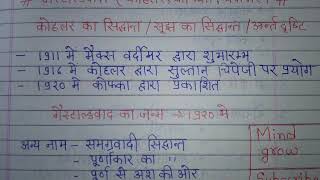 कोहलर का सिद्धान्त / सूझ का सिद्धान्त / अर्न्तदृष्टि
- 1911 मे मैक्स वर्दीमर द्वारा शुभारम्भ
- 1916 मे कोहलर द्वारा सुल्तान चिंपैंजी पर प्रयोग
- 1920 मे कोफ्का द्वारा प्रकाशित
गैस्टाल्टवाद का जन्म → 1920 मे
अन्य नाम - समग्रवादी सिद्धान्त
- पूर्णाकार का "
- पूर्ण से अंश की ओर
Mind
grow
Subscribe